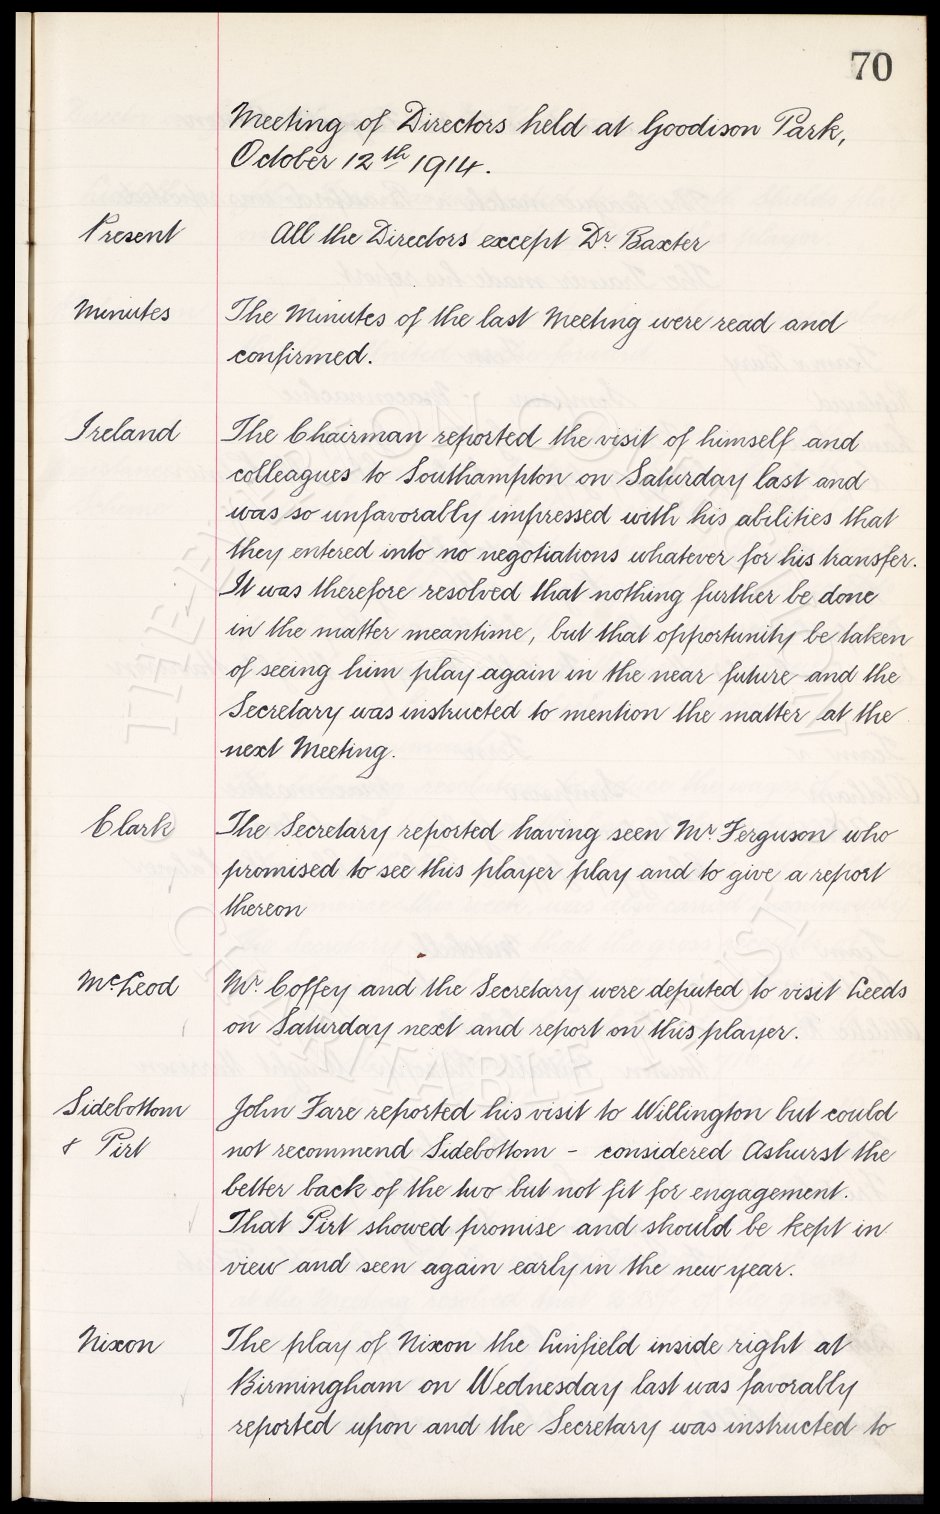 70
Meeting of Directors held at Goodison Park,
October 12th 1914.
Present All the Directors except Dr. Baxter
Minutes The Minutes of the last Meeting were read and
confirmed.
Ireland The Chairman reported the visit of himself and
colleagues to Southampton on Saturday last and
was so unfavorably impressed with his abilities that
they entered into no negotiations whatever for his transfer.
It was therefore resolved that nothing further be done
in the matter meantime, but that opportunity be taken
of seeing him play again in the near future and the
Secretary was instructed to mention the matter at the
next Meeting.
Clark The Secretary reported having seen Mr. Ferguson who
promised to see this player play and to give a report
thereon
McLeod Mr. Coffey and the Secretary were deputed to visit Leeds
on Saturday next and report on this player.
Sidebottom John Fare reported his visit to Willington but could
& Pirt not recommend Sidebottom - considered Ashurst the
better back of the two but not fit for engagement.
That Pirt showed promise and should be kept in
view and seen again early in the new year.
Nixon The play of Nixon the Linfield inside right at
Birmingham on Wednesday last was favorably
reported upon and the Secretary was instructed to